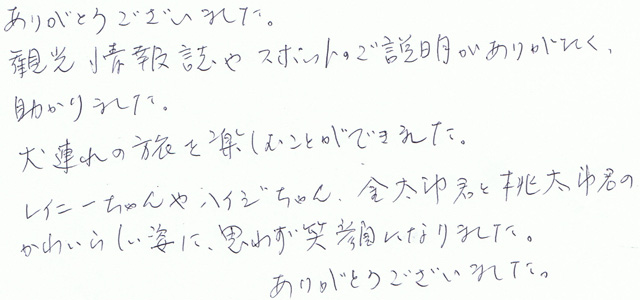 ありがとうございました。
観光情報誌やスポットのご説明がありがたく、
助かりました。
犬連れの旅を楽しむことができました。
レイニーちゃんやハイジちゃん、金太郎君と桃太郎君の
かわいらしい姿に、思わず笑顔になりました。
ありがとうございました。